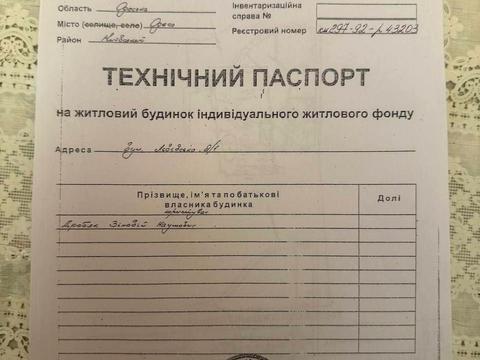 Область Одеська
Місто (селище, село) Одеса
Район Київський
Інвентаризаційна
справа №
Реєстровий номер 297-92- 43203
ТЕХНІЧНИЙ ПАСПОРТ
на житловий будинок індивідуального житлового фонду
Адреса вул.
Прізвище, ім'я та по батькові
власника будинка
Долі
Зіновій Наумович